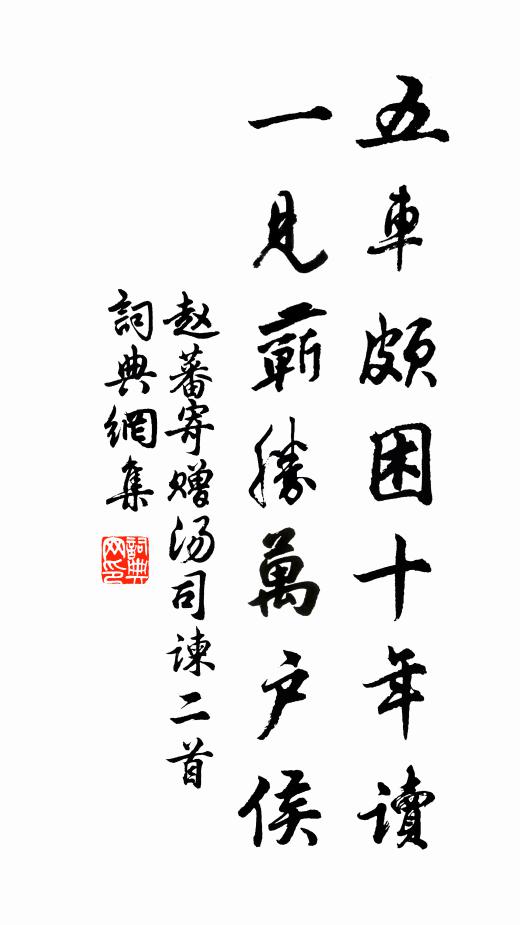 五車頗困十年讀
一見蘄勝萬戶侯
赵蕃寄赠汤司谏二首
詞典網集
詞典网印